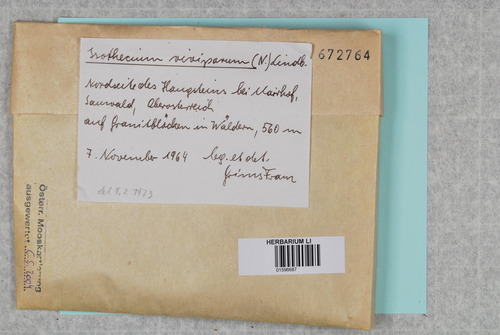 Isothecium viviparum (N.) Lindb.
672764
Nordseite des Haugsteins bei Mairhof,
Sauwald, Oberösterreich
auf Granitblöcken in Wäldern, 560 m
7. November 1964 leg. et det.
Grims Franz
Österr. Mooskartierung
ausgewertet
HERBARIUM LI
01596687